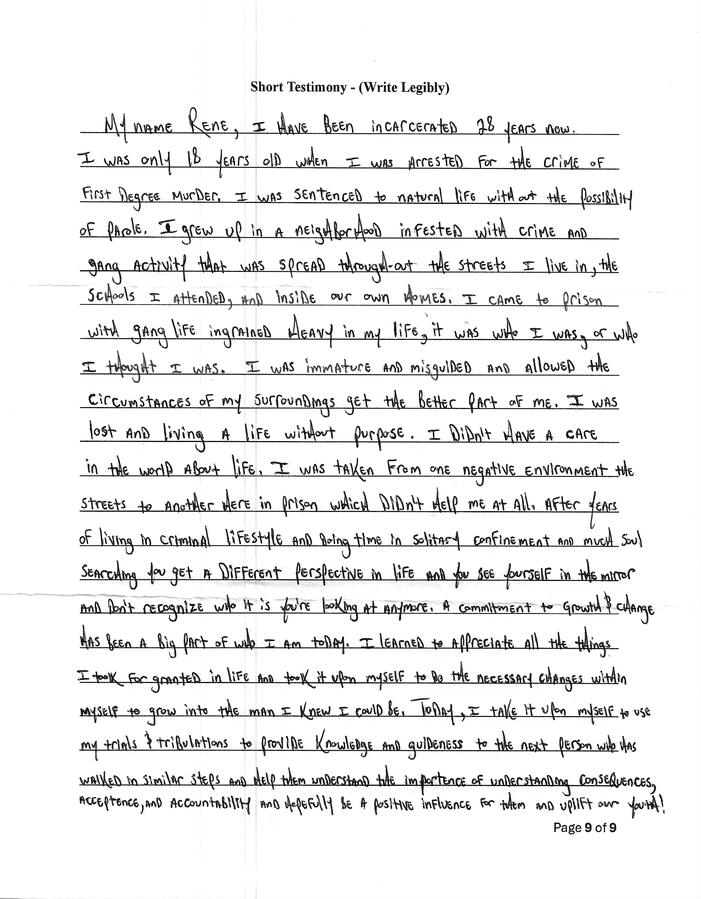 Short Testimony - (Write Legibly)
My name Rene, I have been incarcerated 28 years now.
I was only 18 years old when I was arrested for the crime of
First Degree Murder. I was sentenced to natural life without the possibility
of parole. I grew up in a neighborhood infested with crime and
gang activity that was spread through-out the streets I live in, the
schools I attended, and inside our own homes. I came to prison
with gang life ingrained heavy in my life, it was who I was, or who
I thought I was. I was immature and misguided and allowed the
circumstances of my surroundings get the better part of me. I was
lost and living a life without purpose. I didn't have a care
in the world about life. I was taken from one negative environment the
streets to another here in prison which didn't help me at all. After years
of living in criminal lifestyle and doing time in solitary confinement and much soul
searching you get a different perspective in life and you see yourself in the mirror
and don't recognize who it is you're looking at anymore. A commitment to growth & change
has been a big part of who I am today. I learned to appreciate all the things
I took for granted in life and took it upon myself to do the necessary changes within
myself to grow into the man I knew I could be. Today, I take it upon myself to use
my trials & tribulations to provide knowledge and guideness to the next person who has
walked in similar steps and help them understand the importence of understanding consequences,
acceptence, and accountability and hopefully be a positive influence for them and uplift our youth!
Page 9 of 9